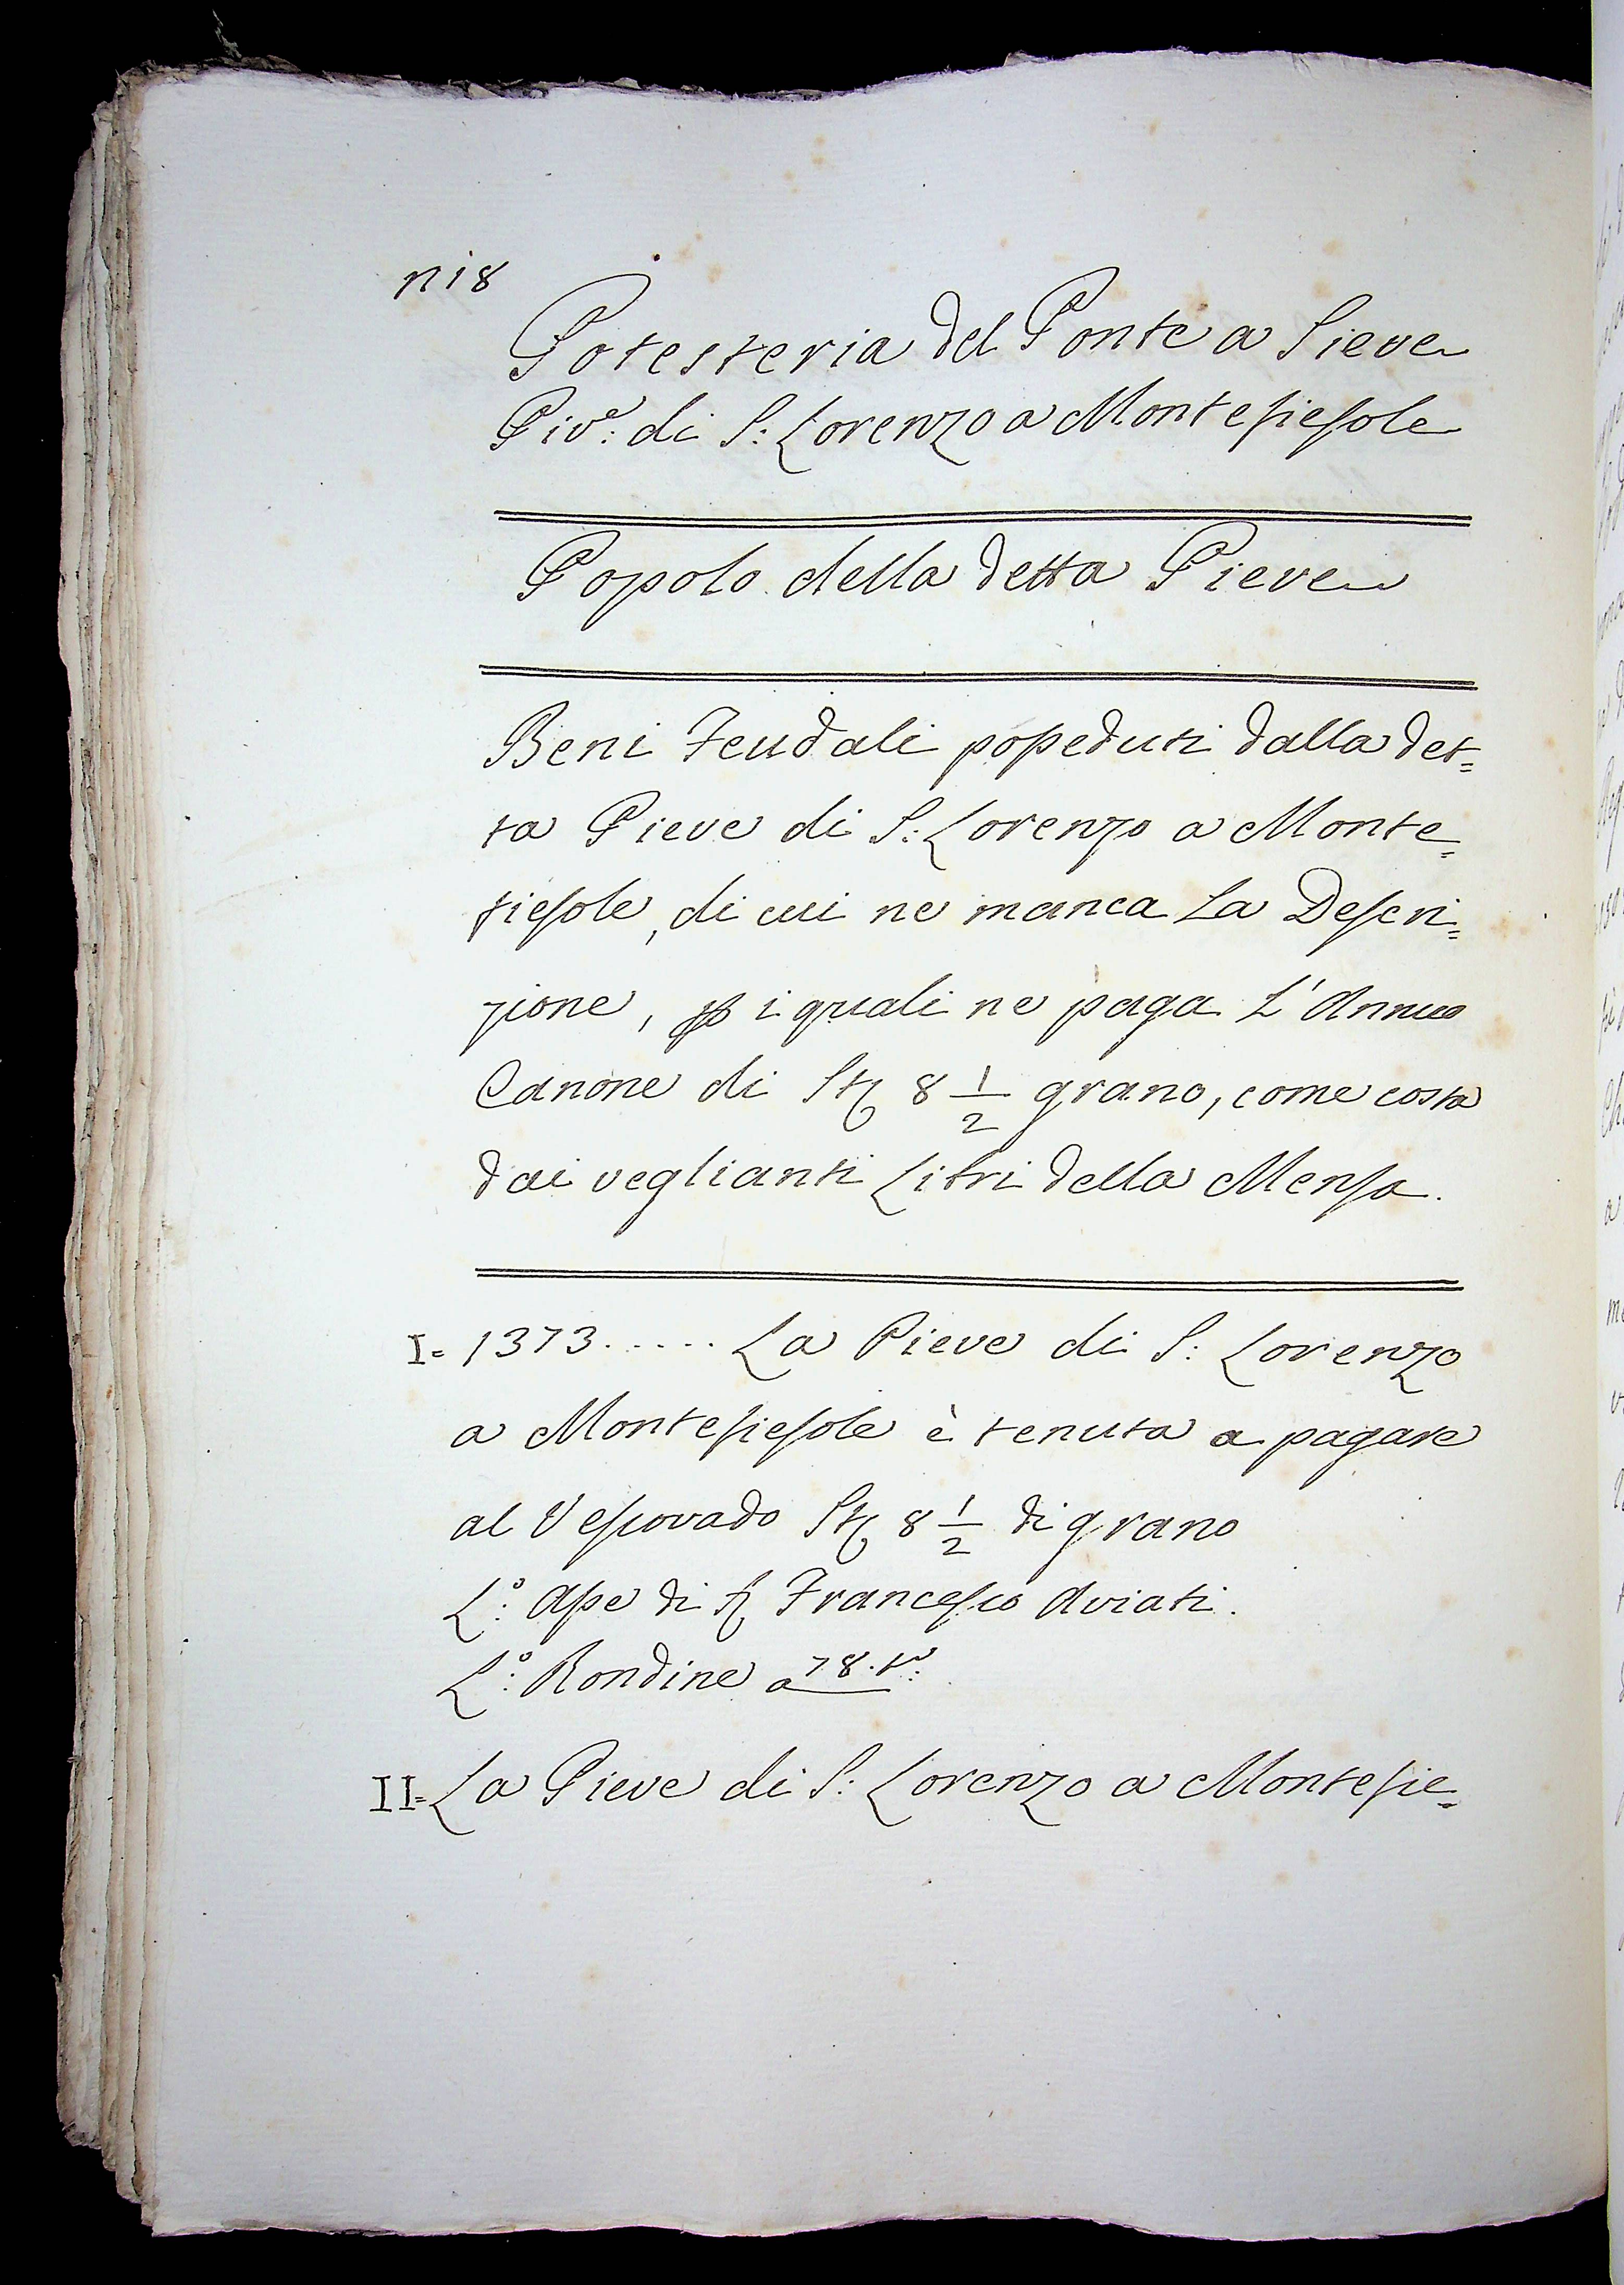 n 18
Potesteria del Ponte a Sieve
Piv.e di S: Lorenzo a Montefiesole
Popolo della detta Pieve
Beni Feudali posseduti dalla det=
ta Pieve di S: Lorenzo a Monte=
fiesole, di cui ne manca La Descri=
zione, p i quali ne paga L'Annuo
Canone di St 8 1/2 grano, come costa
dai veglianti Libri della Mensa.
I= 1373..... La Pieve di S: Lorenzo
a Montefiesole è tenuta a pagare
al Vescovado St 8 1/2 di grano
L.o Ape di Francesco Aviati.
L.o Rondine a 78. t.o
II= La Pieve di S: Lorenzo a Montefie=